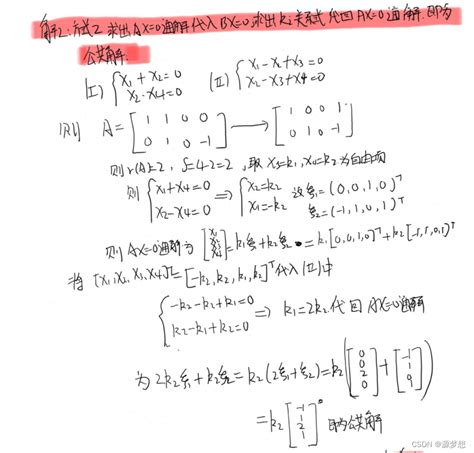 解2:方法2 求出AX=0通解代入BX=0求出ki关系式代回AX=0通解.即为
公共解.
(I) { x₁+x₂=0 (II) { x₁-x₂+x₃=0
x₂-x₄=0 x₂-x₃+x₄=0
则 A= [1 1 0 0 → [1 0 0 1
0 1 0 -1] 0 1 0 -1]
则r(A)=2, S=4-2=2, 取 x₃=k₁, x₄=k₂ 为自由项
则 { x₁+x₄=0 ⇒ { x₂=k₂ 设 ξ₁=(0,0,1,0)ᵀ
x₂-x₄=0 x₁=-k₂ ξ₂=(-1,1,0,1)ᵀ
则AX=0通解为 [x₁ x₂ x₃ x₄] = k₁ξ₁+k₂ξ₂ = k₁[0,0,1,0]ᵀ+k₂[-1,1,0,1]ᵀ
将 [x₁,x₂,x₃,x₄]ᵀ=[-k₂,k₂,k₁,k₂]ᵀ代入(II)中
{ -k₂-k₂+k₁=0 ⇒ k₁=2k₂代回AX=0通解
k₂-k₁+k₂=0
为2k₂ξ₁+k₂ξ₂=k₂(2ξ₁+ξ₂)=k₂([0 0 2 0]+[-1 1 0 1])
=k₂[-1 1 2 1] 即为公共解
CSDN @源梦想